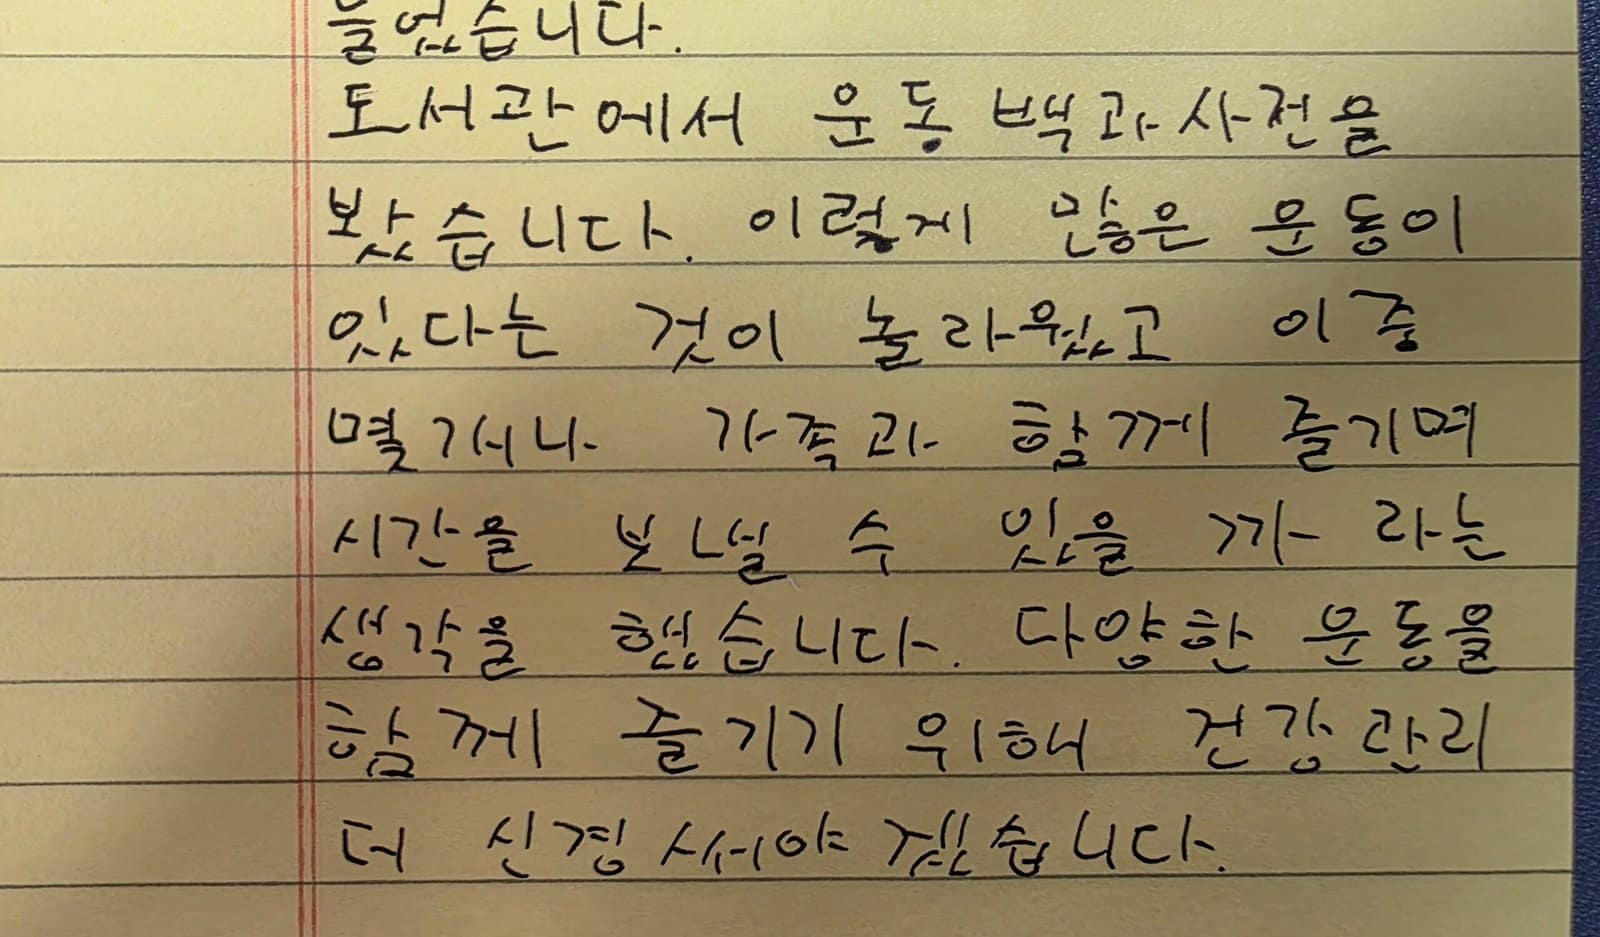 들었습니다.
도서관에서 운동 백과사전을
봤습니다. 이렇게 많은 운동이
있다는 것이 놀라웠고 이중
몇가지나 가족과 함께 즐기며
시간을 보낼 수 있을 까 라는
생각을 했습니다. 다양한 운동을
함께 즐기기 위해 건강관리
더 신경써야겠습니다.